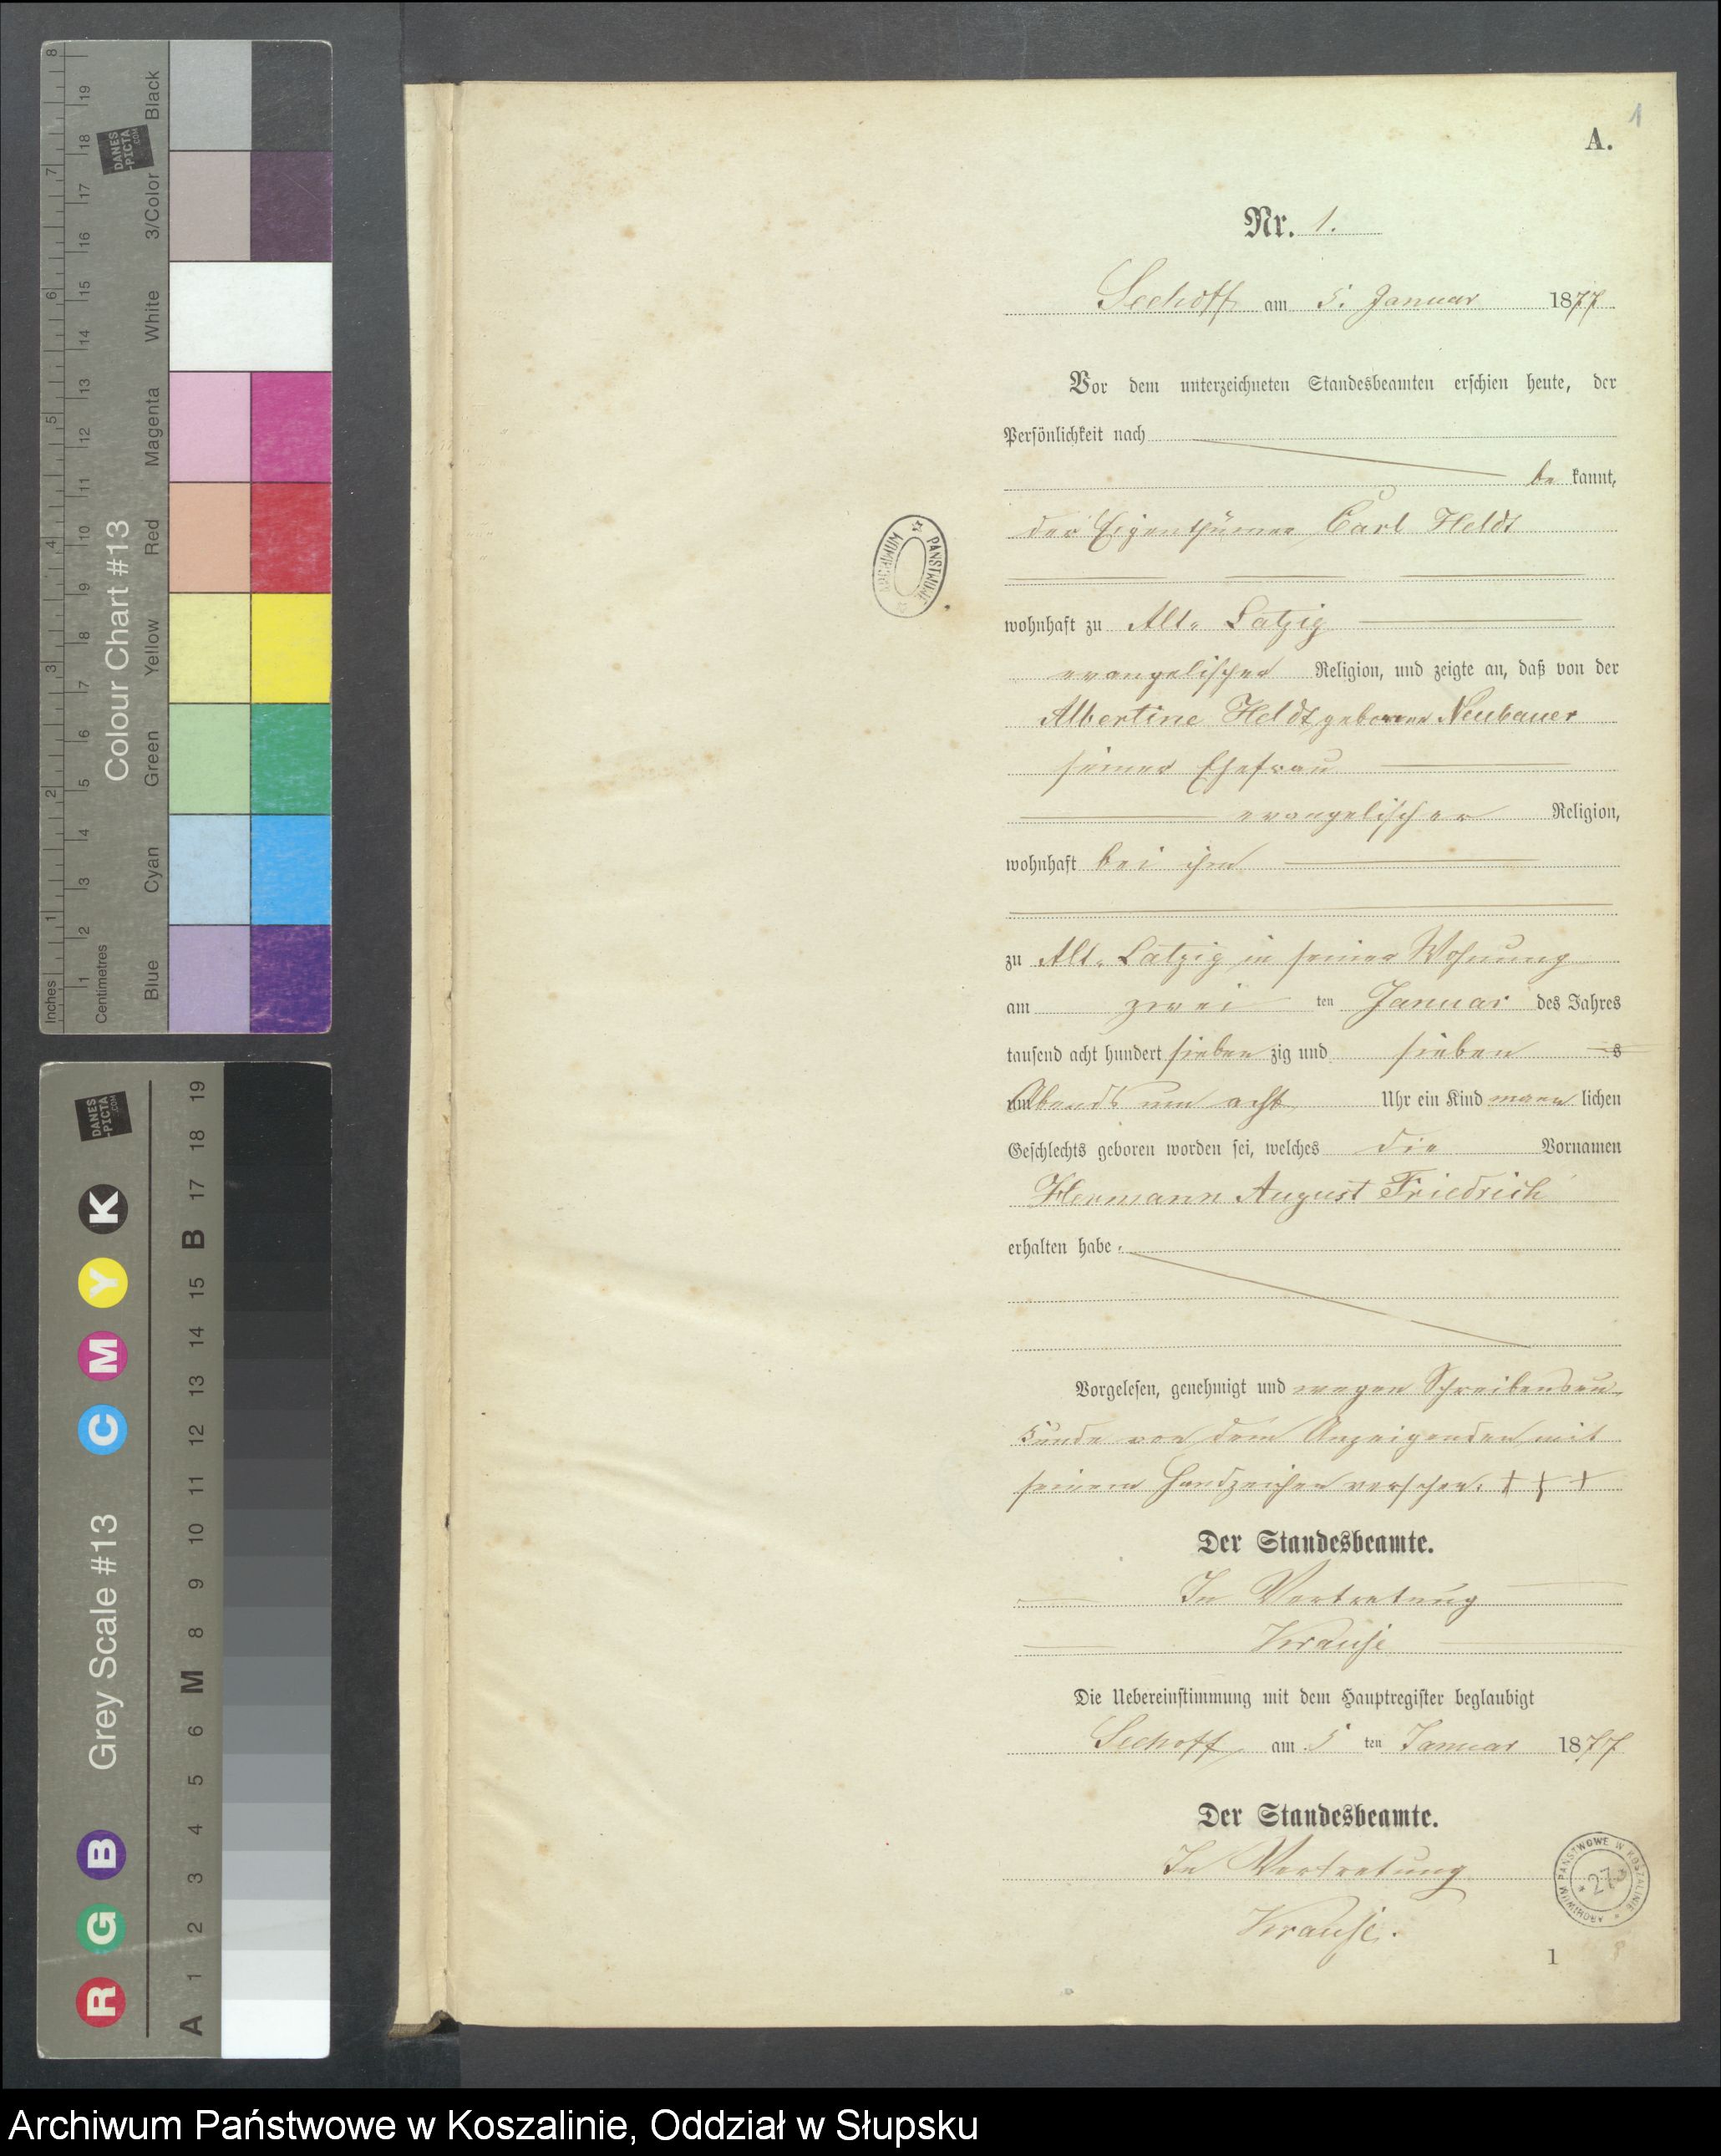 1
A.
Nr. 1.
Seehoff am 5. Januar 1877
Vor dem unterzeichneten Standesbeamten erschien heute, der
Persönlichkeit nach
be kannt,
der Eigenthümer Carl Heldt
wohnhaft zu Alt-Latzig
evangelischer Religion, und zeigte an, daß von der
Albertine Heldt geborenen Neubauer
seiner Ehefrau
evangelischer Religion,
wohnhaft bei ihm
zu Alt-Latzig in seiner Wohnung
am zwei ten Januar des Jahres
tausend acht hundert sieben zig und sieben s
um Abends um acht Uhr ein Kind männ lichen
Geschlechts geboren worden sei, welches die Vornamen
Hermann August Friedrich
erhalten habe.
Vorgelesen, genehmigt und wegen Schreibensun-
kunde von dem Anzeigenden mit
seinem Handzeichen versehen. + + +
Der Standesbeamte.
In Vertretung
Krause
Die Uebereinstimmung mit dem Hauptregister beglaubigt
Seehoff am 5 ten Januar 1877
Der Standesbeamte.
In Vertretung
Krause.
1
ARCHIWUM PAŃSTWOWE
ARCHIWUM PAŃSTWOWE W KOSZALINIE
27
Inches 1 2 3 4 5 6 7 8
Centimetres 1 2 3 4 5 6 7 8 9 10 11 12 13 14 15 16 17 18 19
Colour Chart #13
Blue Cyan Green Yellow Red Magenta White 3/Color Black
DANES
-PICTA
.COM
Grey Scale #13
R G B C M Y K
A 1 2 3 4 5 6 M 8 9 10 11 12 13 14 15 B 17 18 19
DANES
-PICTA
.COM
Archiwum Państwowe w Koszalinie, Oddział w Słupsku